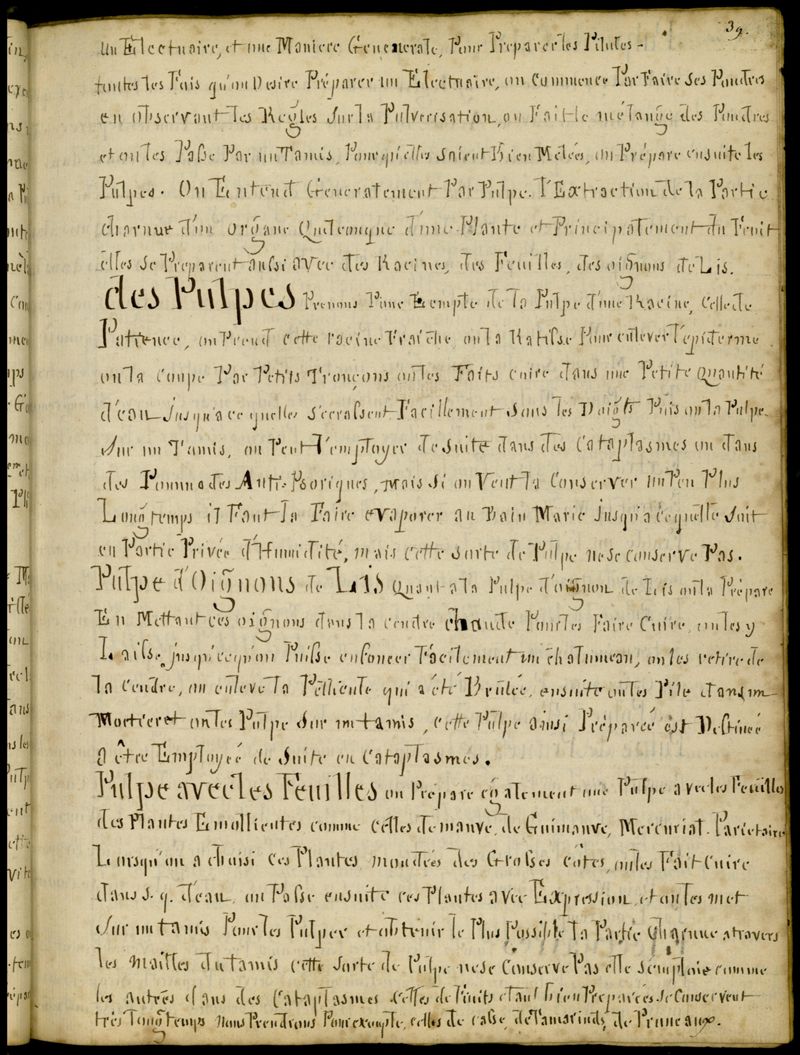 39.
un Electuaire, et une Maniere Generalle, Pour Preparer les Pilules -
toutes les Fois qu'on Desire Préparer un Electuaire, on Commence Par Faire ses Poudres
en observant les Regles sur la Pulverisation, on Fait le mélange des Poudres
et on les Passe Par un Tamis, Pour qu'elles soient Bien Mélées, on Prépare ensuite les
Pulpes. On Entend Generalement Par Pulpe. l'Extraction de la Partie
charnue d'un organe Quelconque d'une Plante et Principalement du Fruit
elles se Preparent aussi avec des Racines, des Feuilles, des oignons de Lis.
des Pulpes Prenons Pour Exemple de la Pulpe d'une Racine, Celle de
Patience, on Prend cette racine Fraiche on la Ratisse Pour enlever l'epiderme
on la Coupe Par Petits Tronçons on les Faits cuire dans une Petite Quantité
d'eau Jusqu'a ce quelles s'ecrasent Facillement sous les Doigts Puis on la Pulpe
sur un Tamis, on Peut l'employer de suite dans des Cataplasmes ou dans
des Pommades Anti-Psoriques, mais si on Veut la Conserver un Peu Plus
Longtemps il Faut la Faire evaporer au Bain Marie Jusqu'a ce quelle soit
en Partie Privée d'Humidité, mais cette sorte de Pulpe ne se conserve Pas.
Pulpe d'Oignons de Lis Quant a la Pulpe d'oignon de Lis on la Prépare
En Mettant ces oignons dans la cendre chaude Pour les Faire Cuire, on les y
Laisse jusqu'ceqn'on Puisse enfoncer Facilement un chalumeau, on les retire de
la Cendre, on enleve la Pellicule qui a été Brulée, ensuite on les Pile dans un
Mortier et on les Pulpe sur un tamis, cette Pulpe ainsi Préparée est Destinée
a être Employée de suite en Cataplasmes.
Pulpe avec les Feuilles on Prepare egalement une Pulpe avec les Feuilles
des Plantes Emollientes comme Celles de mauve, de Guimauve, Mercurial. Parietaire
Lorsqu'on a choisi ces Plantes mondées des Grosses cotes, on les Fait Cuire
dans s. q. d'eau, on Passe ensuite ces Plantes avec Expression, et on les met
sur un tamis Pour les Pulper et obtenir le Plus Possible la Partie Charnue atravers
les mailles du tamis cette sorte de Pulpe ne se Conserve Pas elle s'emploie comme
les autres dans des Cataplasmes celles de fruits etant Bien Preparées se Conservent
tres Longtemps nous Prendrons Pour exemple, celles de Casse, de Tamarinds, de Pruneaux.